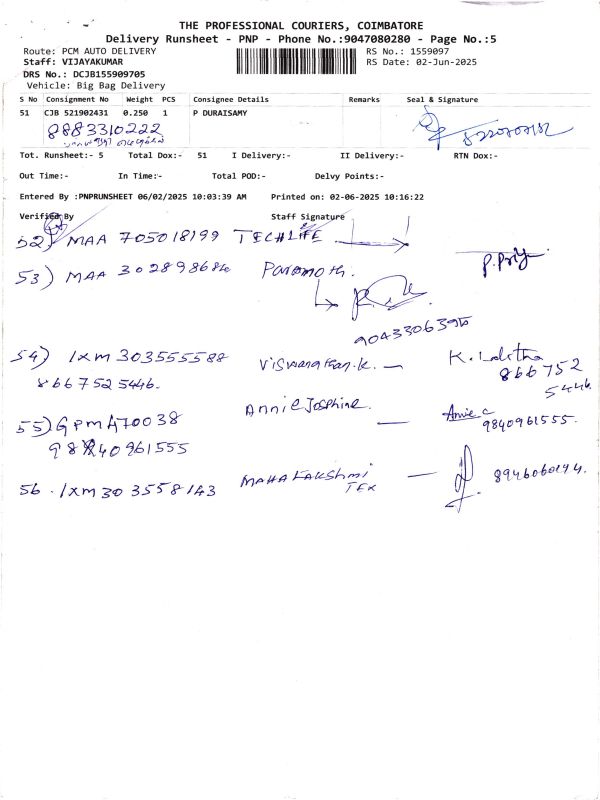 THE PROFESSIONAL COURIERS, COIMBATORE
Delivery Runsheet - PNP - Phone No.:9047080280 - Page No.:5
Route: PCM AUTO DELIVERY
RS No.: 1559097
Staff: VIJAYAKUMAR
RS Date: 02-Jun-2025
DRS No.: DCJB155909705
Vehicle: Big Bag Delivery
S No Consignment No Weight PCS Consignee Details Remarks Seal & Signature
51 CJB 521902431 0.250 1 P DURAISAMY
8883310222
Tot. Runsheet:- 5 Total Dox:- 51 I Delivery:- II Delivery:- RTN Dox:-
Out Time:- In Time:- Total POD:- Delvy Points:-
Entered By :PNPRUNSHEET 06/02/2025 10:03:39 AM Printed on: 02-06-2025 10:16:22
Verified By Staff Signature
52) MAA 705018199 TECHLIFE
P.Priya
53) MAA 302898686 Paramoth.
54) IXM 303555588 Viswanathan.K. — K. Lalitha
8667525446. 866752
5446
55) GPM470038 Annie Josphine. — Annie C
9840961555 9840961555.
56. IXM303558143 MAHALAKSHMI — 8946060194.
TEX